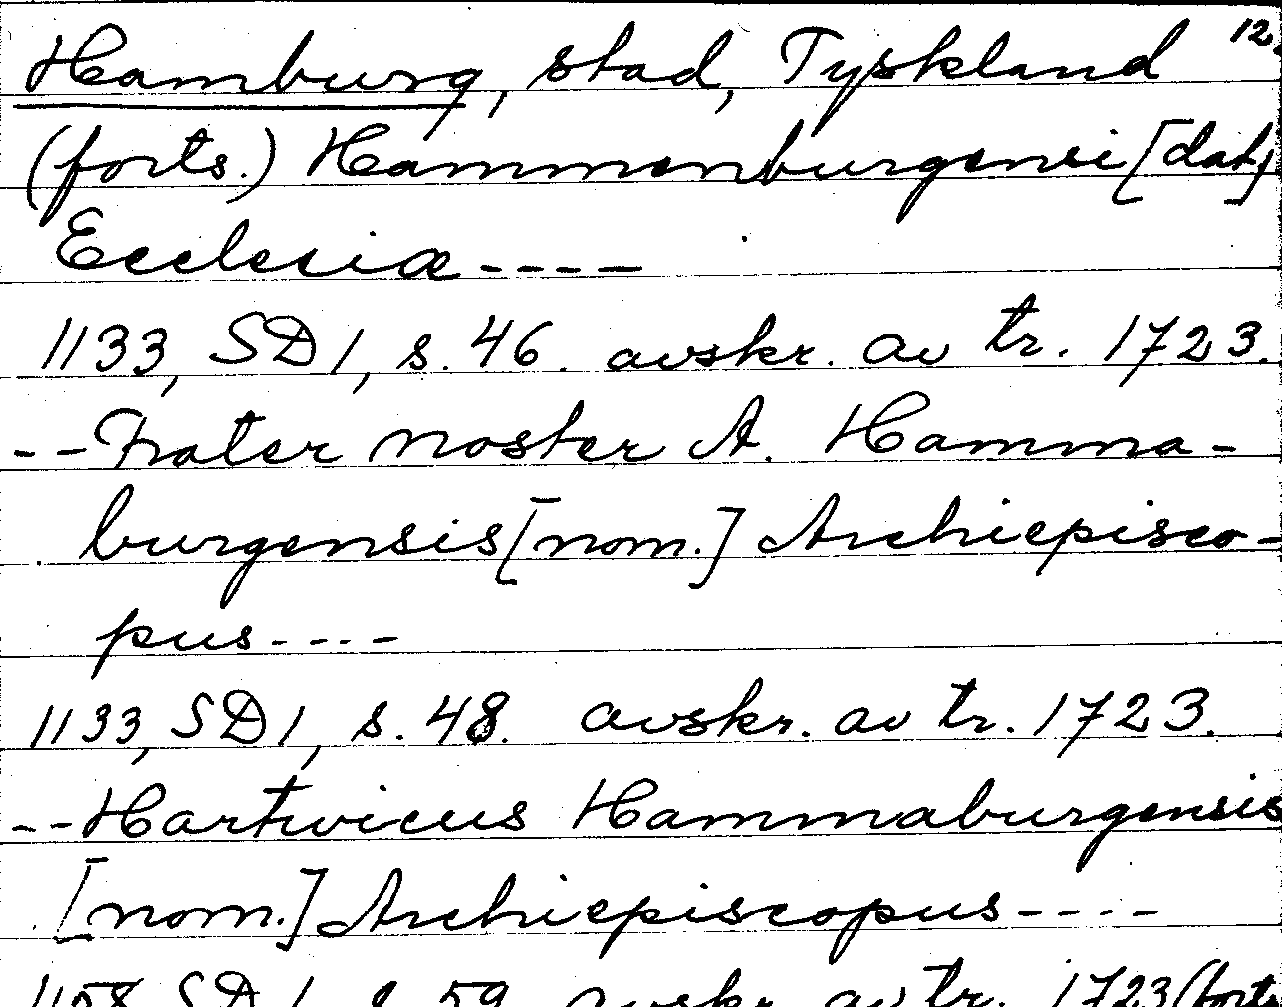 Hamburg, stad, Tyskland 12.
(forts.) Hammenburgensi [dat.]
Ecclesiæ ----
1133, SD 1, s. 46. avskr. av tr. 1723.
-- Frater noster A. Hamma-
burgensis [nom.] Archiepisco-
pus ----
1133, SD 1, s. 48. avskr. av tr. 1723.
-- Hartwicus Hammaburgensis
[nom.] Archiepiscopus ----
1158, SD 1, s. 59. avskr. av tr. 1723 (forts